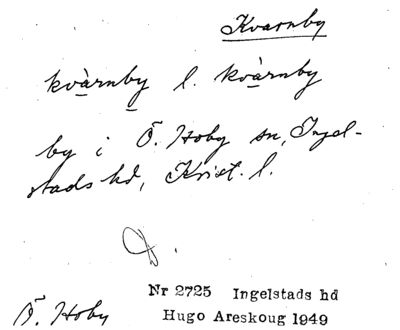 Kvarnby
kvàrnby l. kvàrnby
by i Ö. Hoby sn, Ingel-
stads hd, Krist. l.
Nr 2725 Ingelstads hd
Ö. Hoby Hugo Areskoug 1949